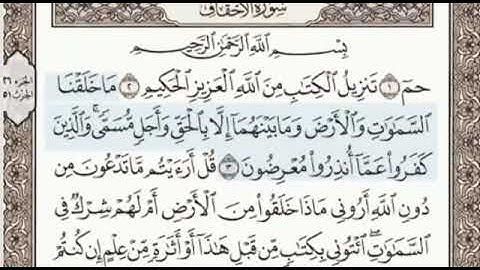 سورة الأحقاف
الجزء ٢٦
الحزب ٥١
بِسْمِ اللَّهِ الرَّحْمَٰنِ الرَّحِيمِ
حمٓ ١ تَنزِيلُ الْكِتَٰبِ مِنَ اللَّهِ الْعَزِيزِ الْحَكِيمِ ٢ مَا خَلَقْنَا
السَّمَٰوَٰتِ وَالْأَرْضَ وَمَا بَيْنَهُمَآ إِلَّا بِالْحَقِّ وَأَجَلٍ مُّسَمًّى ۚ وَالَّذِينَ
كَفَرُوا عَمَّآ أُنذِرُوا مُعْرِضُونَ ٣ قُلْ أَرَءَيْتُم مَّا تَدْعُونَ مِن
دُونِ اللَّهِ أَرُونِى مَاذَا خَلَقُوا مِنَ الْأَرْضِ أَمْ لَهُمْ شِرْكٌ فِى
السَّمَٰوَٰتِ ۖ ائْتُونِى بِكِتَٰبٍ مِّن قَبْلِ هَٰذَآ أَوْ أَثَٰرَةٍ مِّنْ عِلْمٍ إِن كُنتُمْ